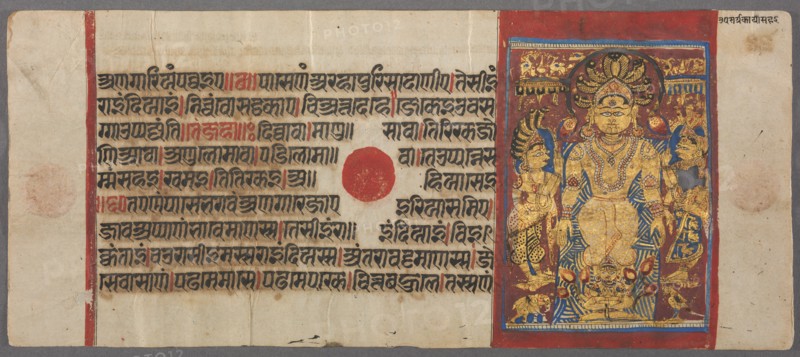 अणगारियं पव्वइए॥छ॥पासेणं अरहा पुरिसादाणीए।तेसीइं
राइंदियाइं।निच्चं वोसट्ठकाए।चियत्तदेहे।जे केइ उवस
ग्गा उप्पज्जंति।तंजहा॥दिव्वा वा माणु॥ सा वा।तिरिक्खजो
णिआ वा।अणुलोमा वा।पडिलोमा॥ वा।ते उप्पन्ने स
म्मं सहइ।खमइ।तितिक्खइ।अ॥ हियासेइ
॥छ॥तएणं पासे भगवं अणगारे जाए इरियासमिए।
जाव अप्पाणं भावेमाणस्स।तेसीइं रा॥ इंदियाइं।विइ
क्कंताइं।चउरासीइमस्स राइंदियस्स।अंतरा वट्टमाणस्स।जे
पढमे मासे।पढमे पक्खे।चित्तबहुले।तस्सणं